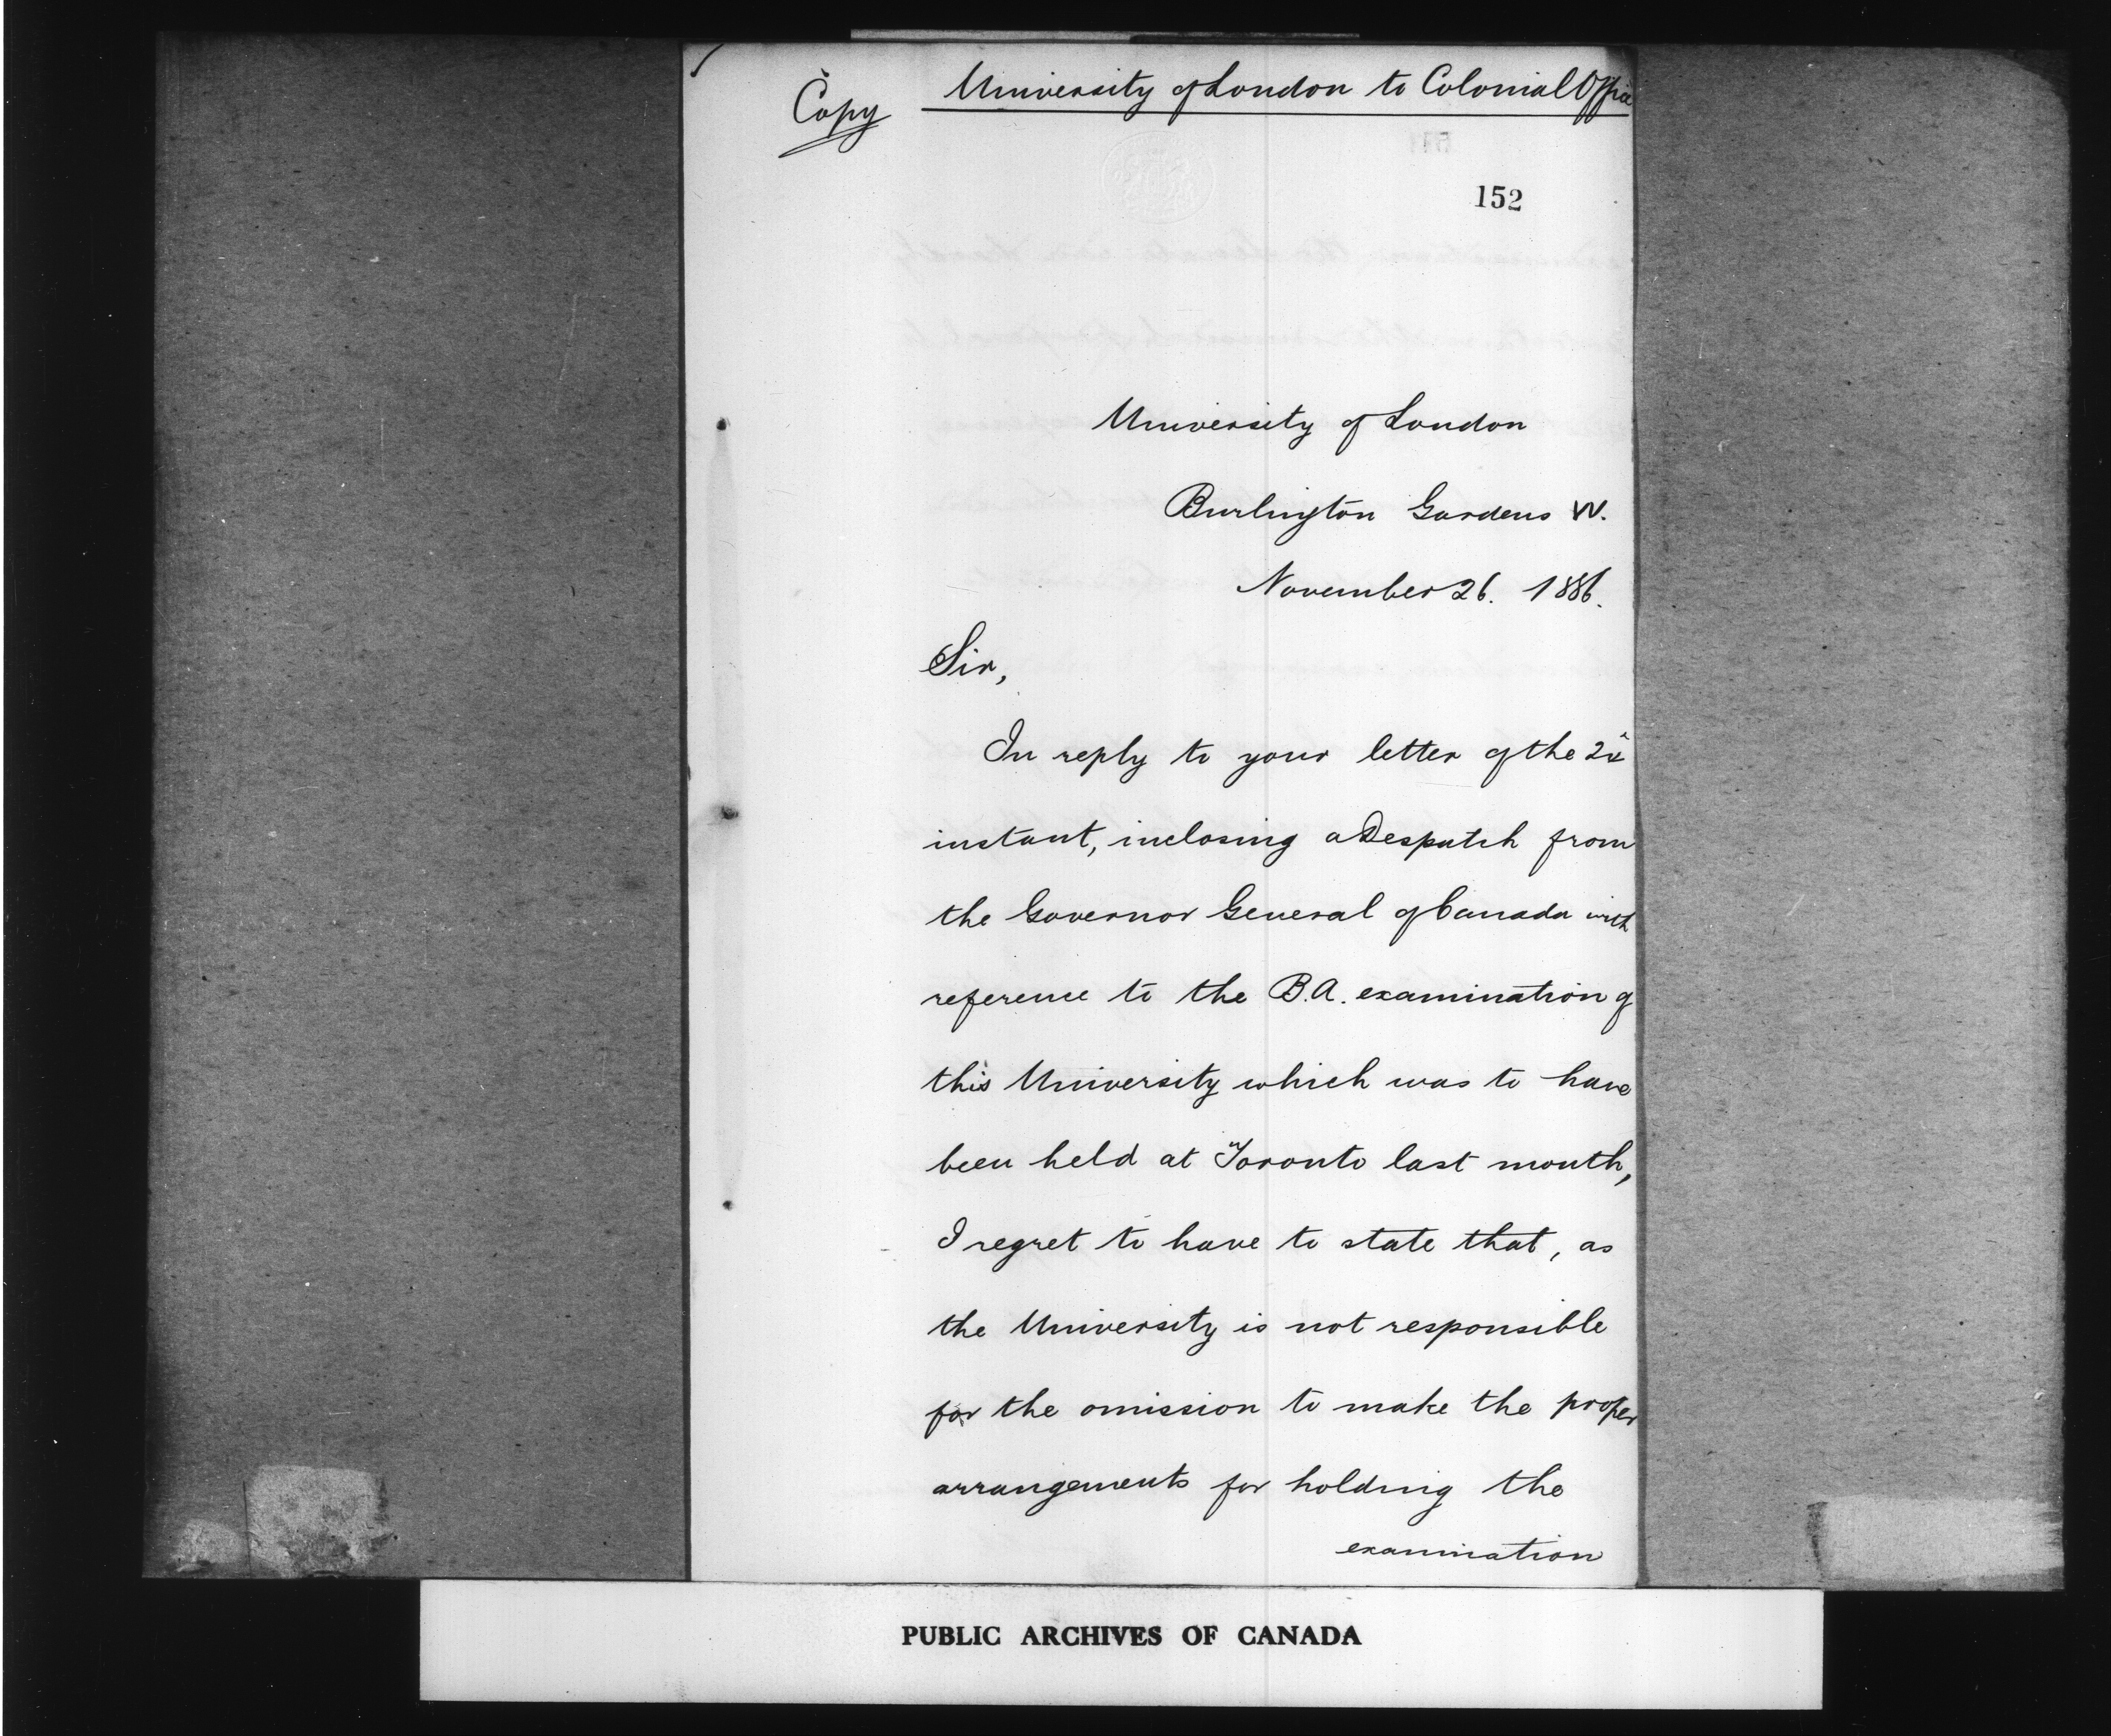 Copy University of London to Colonial Office
152
University of London
Burlington Gardens W.
November 26. 1886.
Sir,
In reply to your letter of the
instant, inclosing a Despatch from
the Governor General of Canada with
reference to the B.A. examination of
this University which was to have
been held at Toronto last month,
I regret to have to state that, as
the University is not responsible
for the omission to make the proper
arrangements for holding the
examination
PUBLIC ARCHIVES OF CANADA